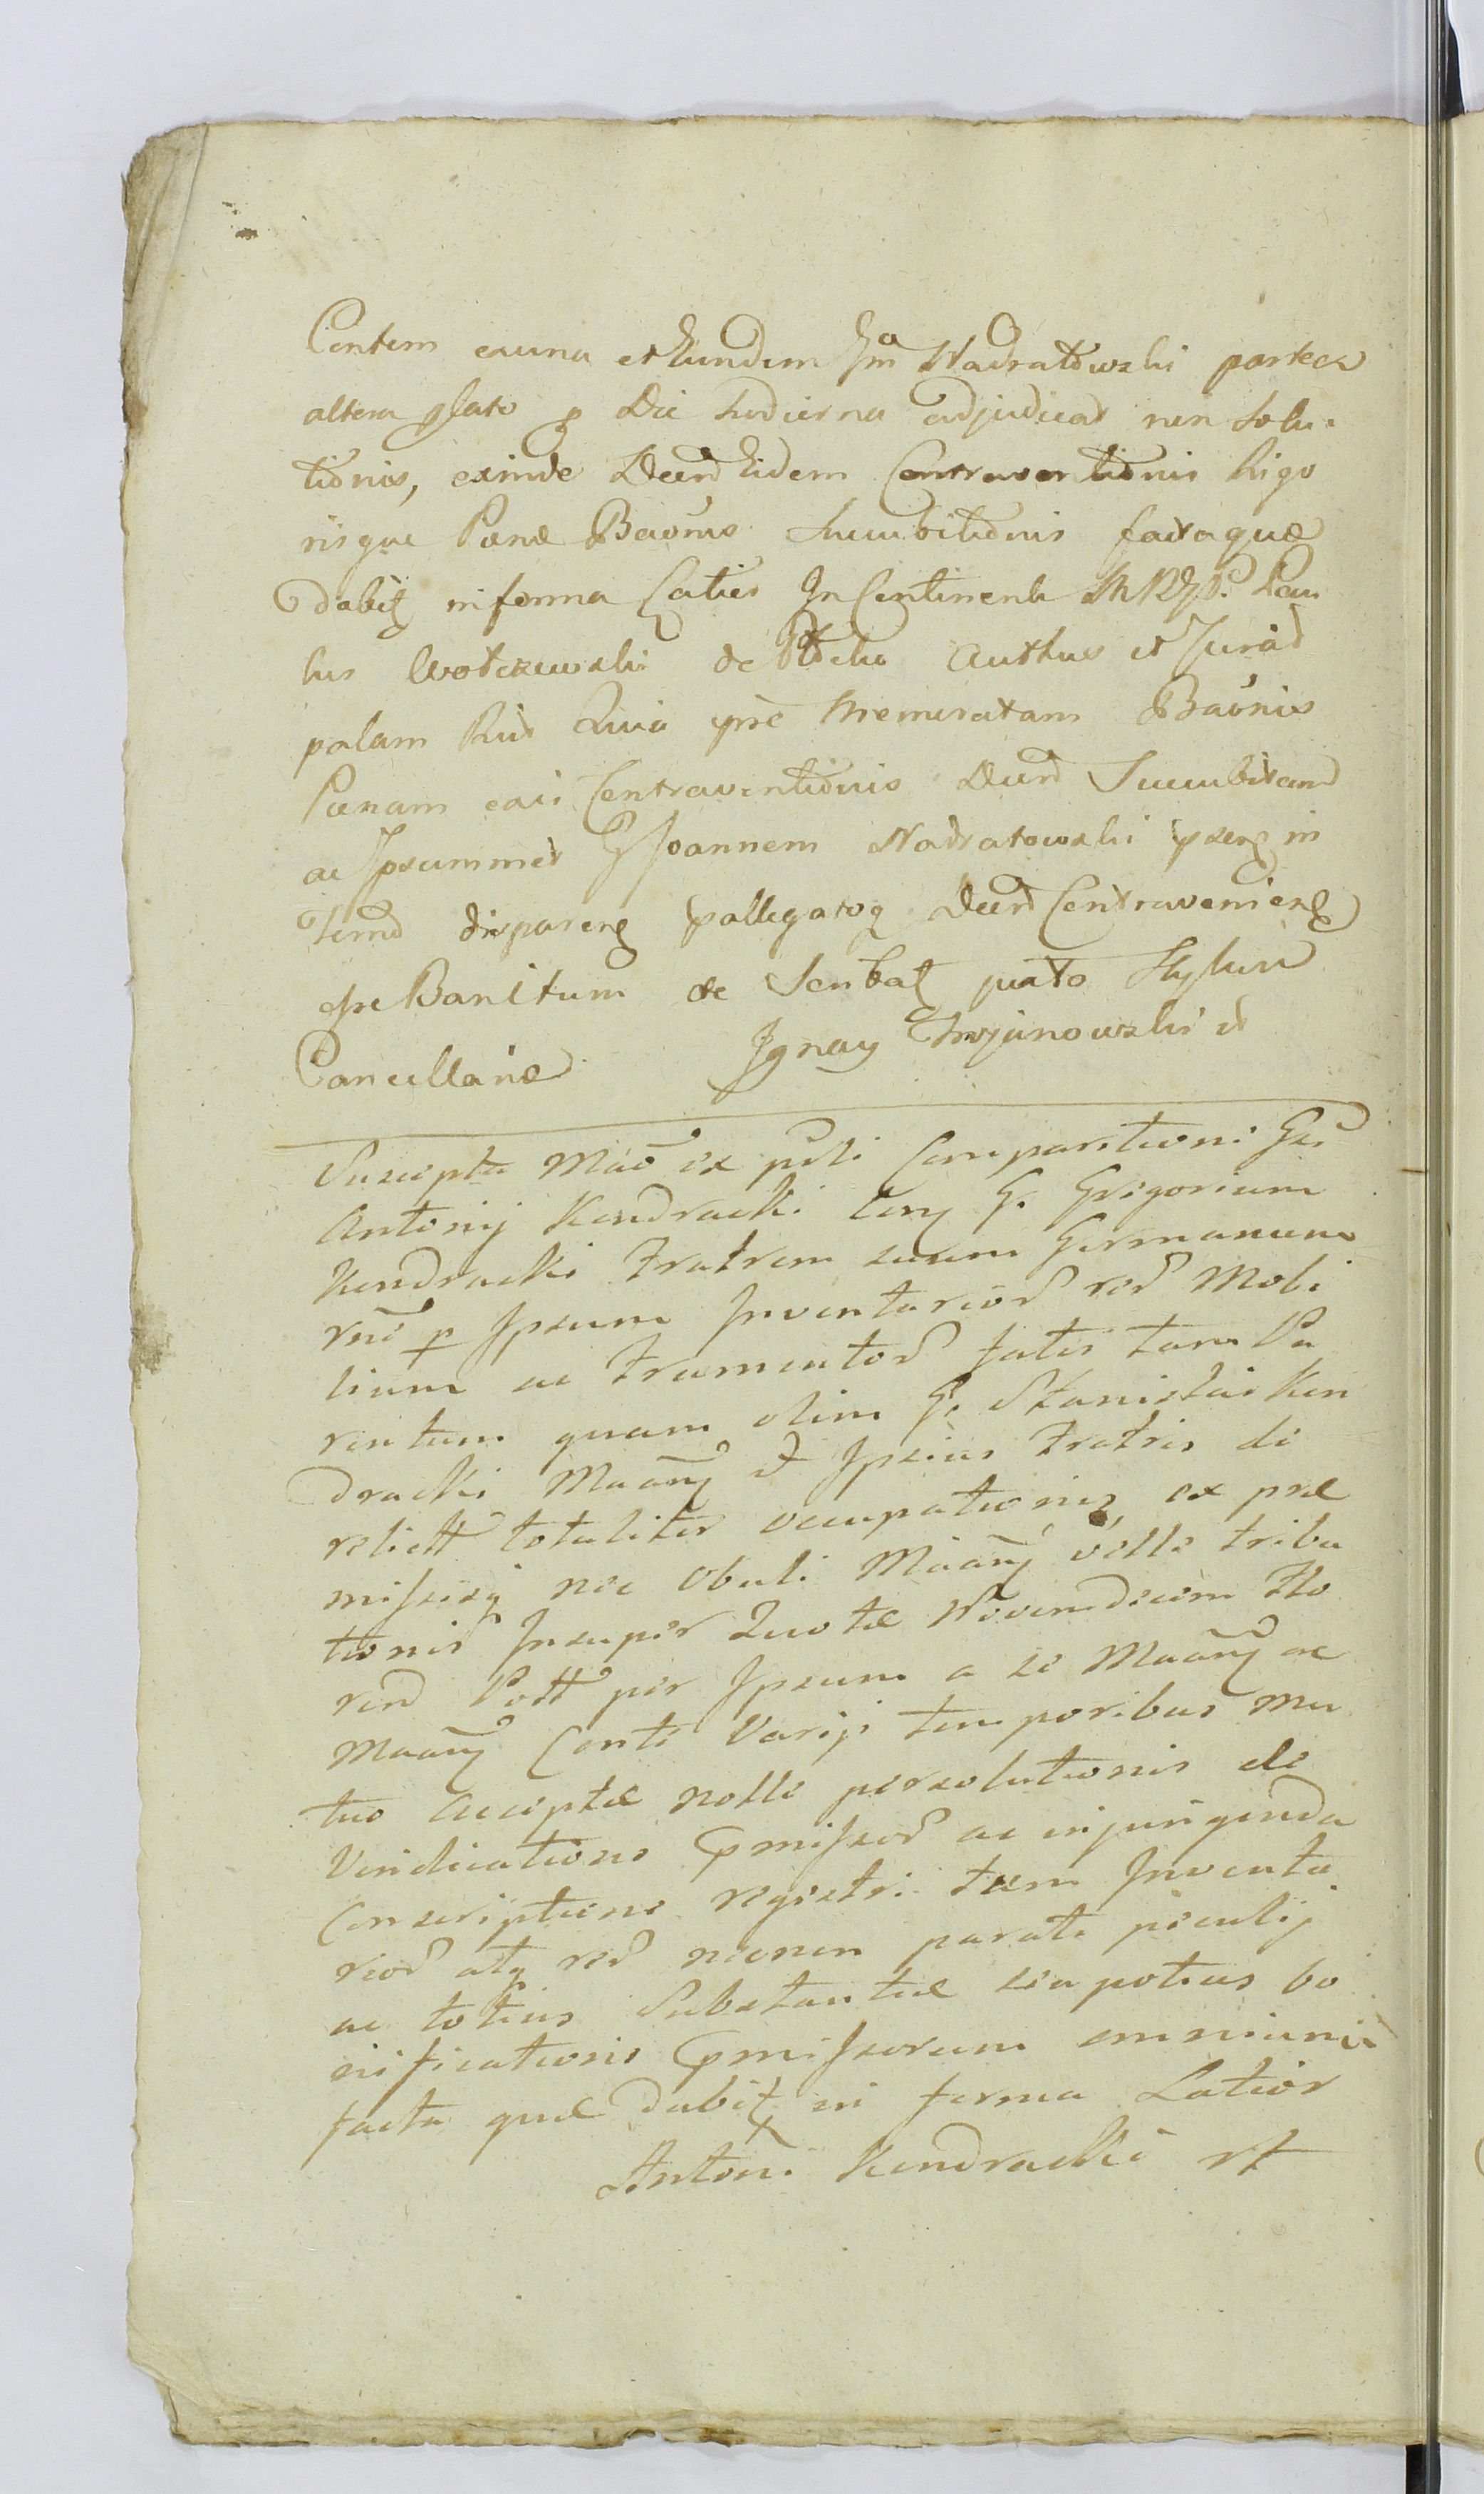 Contem exuna et Eundem Gm Nadratowski partea
altera plato p Die hodierna adjudicat non Solu
tionis, exinde Decrd Eidem Contraventionis Rigo
risque Pænæ Baonis Succubitionis factaquæ
dabit in forma Latius In Continenti Paw
lus Wotczewski de Authus et Jurad
palam Quia Memoratam Baonis
Pænam eaei Contraventionis Decrd Succubitand
ac Ipsummet G Joannem Nadratowski in
Termo disparen pallegatoq Decrd Contravenien
Banitum de juxto Stylum
Cancellariæ Ignacy Trojanowski
Suscepta Mão ex pdti Comparitioni Gsi
Antonij Kendracki Cong G. Grigorium
Kendracki Fratrem suum Germanum
rnē p Ipsum Inventariod red Mobi
lium ac Frumentod fatis tam Pa
rentum quam olim G. Stanislai Ken
dracki Maang et Ipsius Fratris de
relictt totaliter occupationis, ex præ
missisq nec Obuli Maang velle tribu
tionis Insuper Quotæ Novemdecim Flo
ren Pott per Ipsum a se Maang ac
Maang Conte Varijs temporibus mu
tuo acceptæ nolle persolutionis de
Vindicatione pmissod ac injungenda
Conscriptione registri tam Inventa
riod atq red necnon parate peculij
ac totius Substantiæ sea potius bo
nificationis pmissorum omnium
facta quæ dabit in forma Latior
Antoni Kendracki